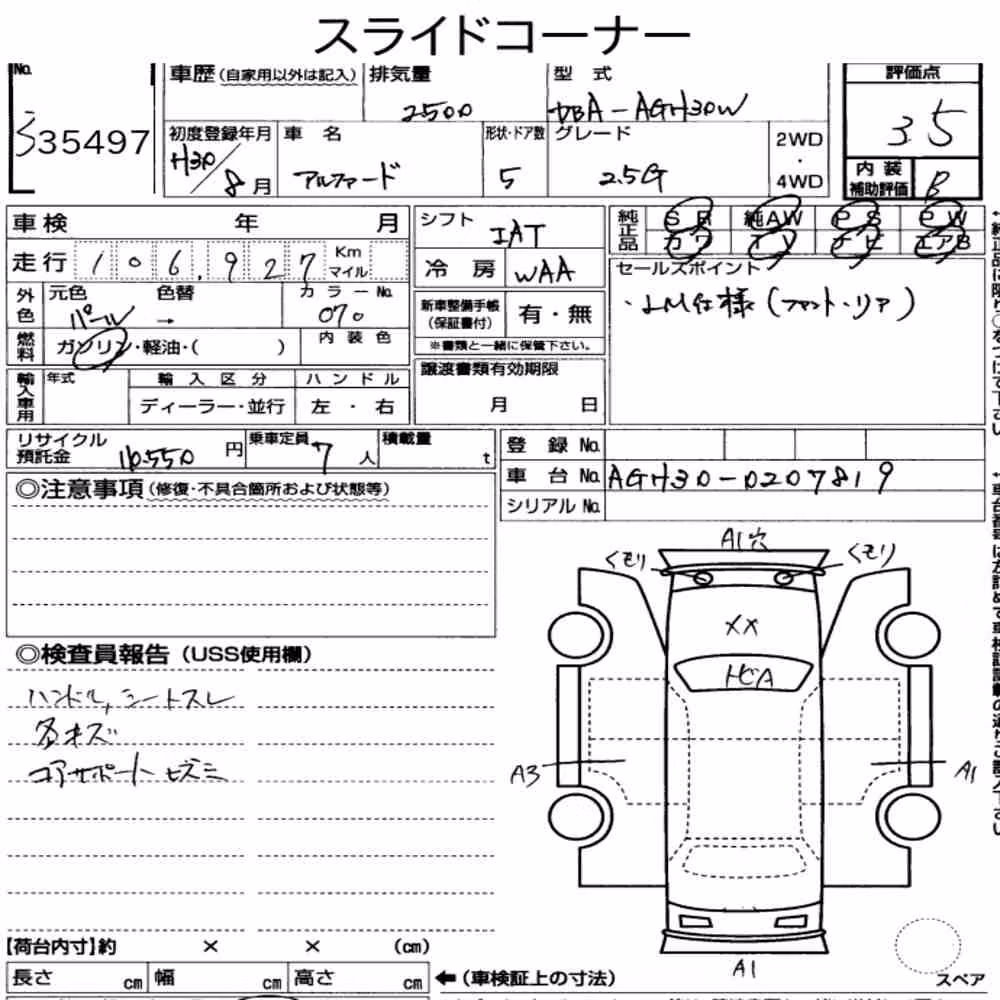 スライドコーナー
No. 335497
車歴(自家用以外は記入)
排気量 2500
型式 DBA-AGH30W
評価点 3.5
初度登録年月 H30/8月
車名 アルファード
形状・ドア数 5
グレード 2.5G
2WD・4WD
内装補助評価 B
車検 年 月
走行 106,927 Km マイル
シフト IAT
冷房 WAA
純正品 SR 純AW PS PW
カワ TV ナビ エアB
セールスポイント
・LM仕様(フロント・リア)
外色 元色 パール 色替 → カラーNo. 070
燃料 ガソリン・軽油・( ) 内装色
新車整備手帳(保証書付) 有・無
※書類と一緒に保管下さい。
輸入車用 年式 輸入区分 ハンドル
ディーラー・並行 左・右
譲渡書類有効期限
月 日
リサイクル預託金 16,550円
乗車定員 7人
積載量 t
登録No.
車台No. AGH30-0207819
シリアルNo.
◎注意事項(修復・不具合箇所および状態等)
◎検査員報告(USS使用欄)
ハンドル,シートスレ
各キズ
コアサポートヒズミ
A1穴
くもり くもり
XX
トビA
A3 A1
A1
スペア
【荷台内寸】約 × × (cm)
長さ cm 幅 cm 高さ cm
←(車検証上の寸法)